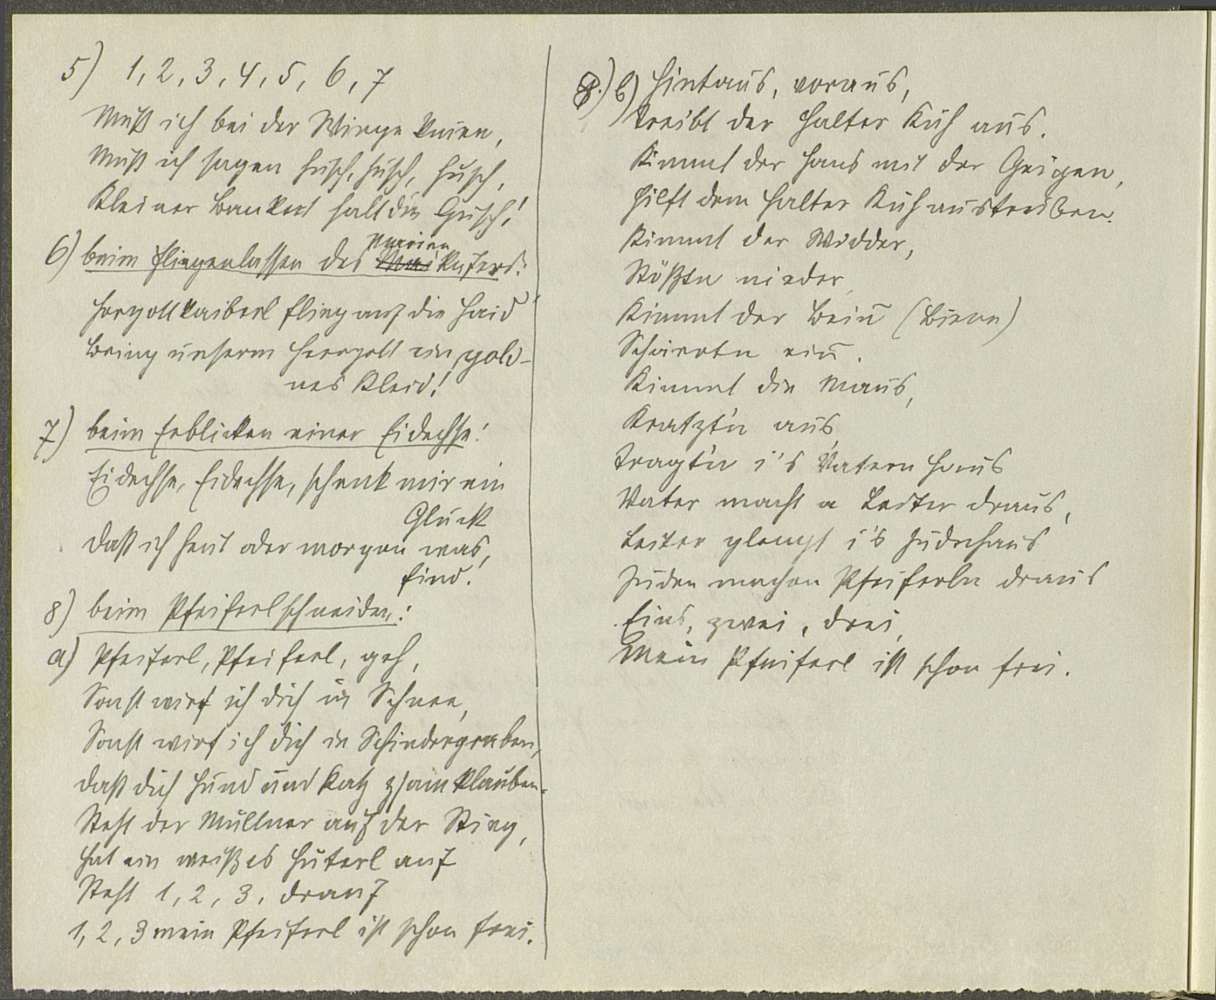 5) 1, 2, 3, 4, 5, 6, 7
Muß ich bei der Wiege knien,
Muß ich sagen husch, husch, husch,
Kleiner Bankert halt die Gusch!
6) beim Fliegenlassen des Marienkäfers:
Herrgottkaiberl flieg auf die Haid
Bring unserm Herrgott ein gold-
nes Kleid!
7) beim Erblicken einer Eidechse:
Eidechse, Eidechse, schenk mir ein
Glück
Daß ich heut oder morgen was,
find!
8) beim Pfeiferlschneiden:
a) Pfeiferl, Pfeiferl, geh,
Sonst wirf ich dich in Schnee,
Sonst wirf ich dich in Schindergraben,
Daß dich Hund und Katz zsamklauben.
Steht der Müllner auf der Stieg,
Hat ein weißes Hüterl auf
Steht 1, 2, 3, drauf
1, 2, 3 mein Pfeiferl ist schon frei.
8.) b) Hintaus, voraus,
Treibt der Halter Küh aus.
Kimmt der Hans mit der Geigen,
Hilft dem Halter Küh austreiben.
Kimmt der Widder,
Stößtn nieder,
Kimmt der Bein (Biene)
Schärrtn ein.
Kimmt die Maus,
Kratzt'n aus
Tragt'n i's Vatern Haus
Vater macht a Leiter draus,
Leiter glangt i's Judnhaus
Juden machen Pfeiferln draus
Eins, zwei, drei,
Mein Pfeiferl ist schon frei.